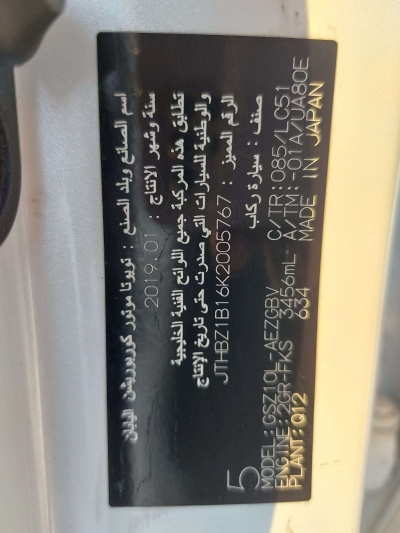 اسم الصانع وبلد الصنع : تويوتا موتور كوربوريشن اليابان
سنة وشهر الإنتاج : 2019.01
تطابق هذه المركبة جميع اللوائح الفنية الخليجية
والوطنية للسيارات التي صدرت حتى تاريخ الإنتاج
الرقم المميز : JTHBZ1B16K2005767
صنف : سيارة ركاب
5
MODEL:GSZ10L-AEZGBV C/TR:085/LC51
ENGINE:2GR-FKS 3456mL A/TM:-01A/UA80E
PLANT:Q12 634 MADE IN JAPAN